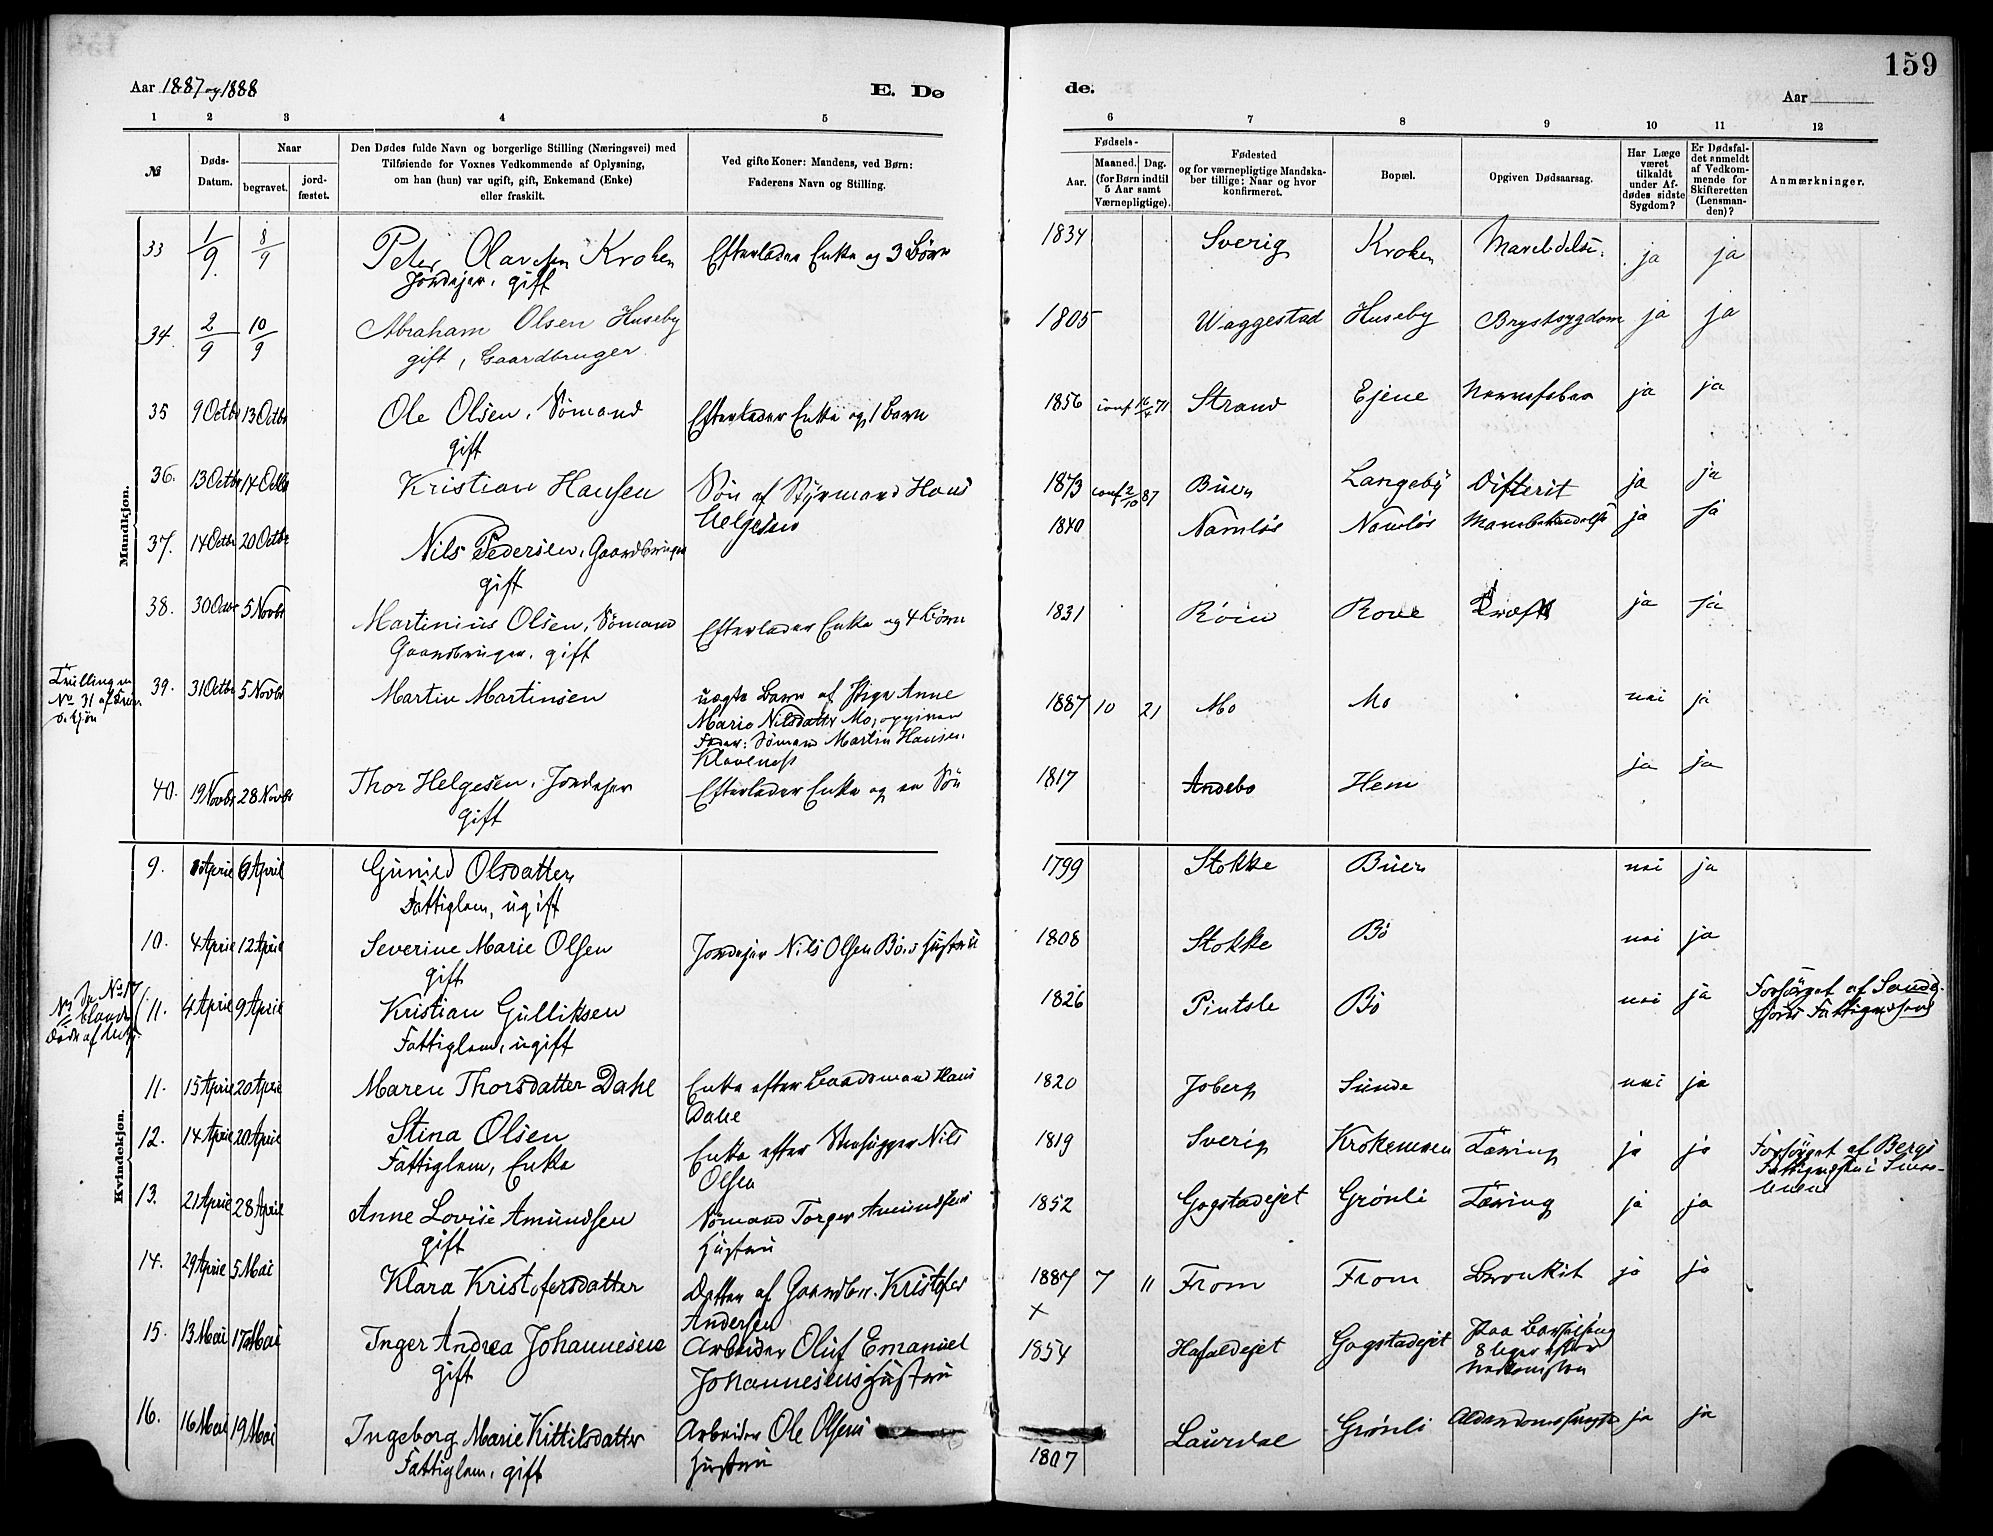 159
Aar 1887 og 1888
E. Dø
de.
Aar
1 2 3 4 5 6 7 8 9 10 11 12
№
Døds-Datum.
Naar
begravet.
jord-fæstet.
Den Dødes fulde Navn og borgerlige Stilling (Næringsvei) med
Tilføiende for Voxnes Vedkommende af Oplysning,
om han (hun) var ugift, gift, Enkemand (Enke)
eller fraskilt.
Ved gifte Koner: Mandens, ved Børn:
Faderens Navn og Stilling.
Fødsels-
Aar.
Maaned. Dag.
(for Børn indtil
5 Aar samt
Værnepligtige).
Fødested
og for værnepligtige Mandska-
ber tillige: Naar og hvor
konfirmeret.
Bopæl.
Opgiven Dødsaarsag.
Har Læge
været
tilkaldt
under Af-
dødes sidste
Sygdom?
Er Dødsfal-
det anmeldt
af Vedkom-
mende for
Skifteretten
(Lensman-
den)?
Anmærkninger.
Mandkjøn.
33 1/9 8/9 Peter Olavsen Kroken Efterlader Enke og 3 Børn 1834 Sverig Kroken ja ja
Jordejer, gift
34. 2/9 10/9 Abraham Olsen Huseby 1805 Waggestad Huseby Brystsygdom ja ja
gift, Gaardbruger
35 9 Octbr 13 Octbr Ole Olsen, Sømand Efterlader Enke og 1 Barn 1856 conf 16/4 71 Strand Ejene Nervefeber ja ja
gift
36. 13 Octbr 14 Octbr Kristian Hansen Søn af Styrmand Hans 1873 conf 2/10 87 Buer Langeby Difterit ja ja
Helgesen
37. 14 Octbr 20 Octbr Nils Pedersen, Gaardbruger 1840 Namløs Namløs ja ja
gift
38. 30 Octbr 5 Novbr Martinius Olsen, Sømand Efterlader Enke og 4 Børn 1831 Rove Kræft ja ja
Gaardbruger, gift
Tvilling m
No 31 af Kvin
dekjøn
39. 31 Octbr 5 Novbr Martin Martinsen uægte Barn af Pige Anne 1887 10 21 Mo Mo nei ja
Marie Nilsdatter Mo, opgiven
Fader: Sømand Martin Hansen,
Klavenes
40. 19 Novbr 28 Novbr Thor Helgesen, Jordejer Efterlader Enke og en Søn 1817 Andebo Hem ja ja
gift
Kvindekjøn.
9. April 6 April Gunild Olsdatter 1799 Stokke Buer nei ja
Fattiglem, ugift
10. 4 April 12 April Severine Marie Olsen Jordejer Nils Olsen Bøes Hustru 1808 Stokke Bø nei ja
gift
11. 4 April 9 April Kristian Gulliksen 1826 Pintsle Bø nei ja Forsørget af Sande-
Fattiglem, ugift fjords Fattigvæsen
11. 15 April 20 April Maren Thorsdatter Dahl Enke efter Baadsmand Hans 1820 Joberg Sunde nei ja
Dahl
12. 14 April 20 April Stina Olsen Enke efter Stenhugger Nils 1819 Sverig Krokemoen Tæring ja ja Forsørget af Bergs
Fattiglem, Enke Olsen
13. 21 April 28 April Anne Lovise Amundsen Sømand Torger Amundsens 1852 Gogstadejet Grønli Tæring ja ja
gift Hustru
14. 29 April 5 Mai Klara Kristofersdatter Datter af Gaardbr. Kristofer 1887 7 11 From From Bronkit ja ja
Andersen ×
15. 13 Mai 17 Mai Inger Andrea Johannesen Arbeider Oluf Emanuel 1854 Hasaldejet Gogstadejet Paa Barselseng
gift Johannesens Hustru 8 Dager efter
Nedkomsten
16. 16 Mai 19 Mai Ingeborg Marie Kittilsdatter Arbeider Ole Olsens 1807 Laurdal Grønli Alderdomssvaghed ja ja
Fattiglem, gift Hustru